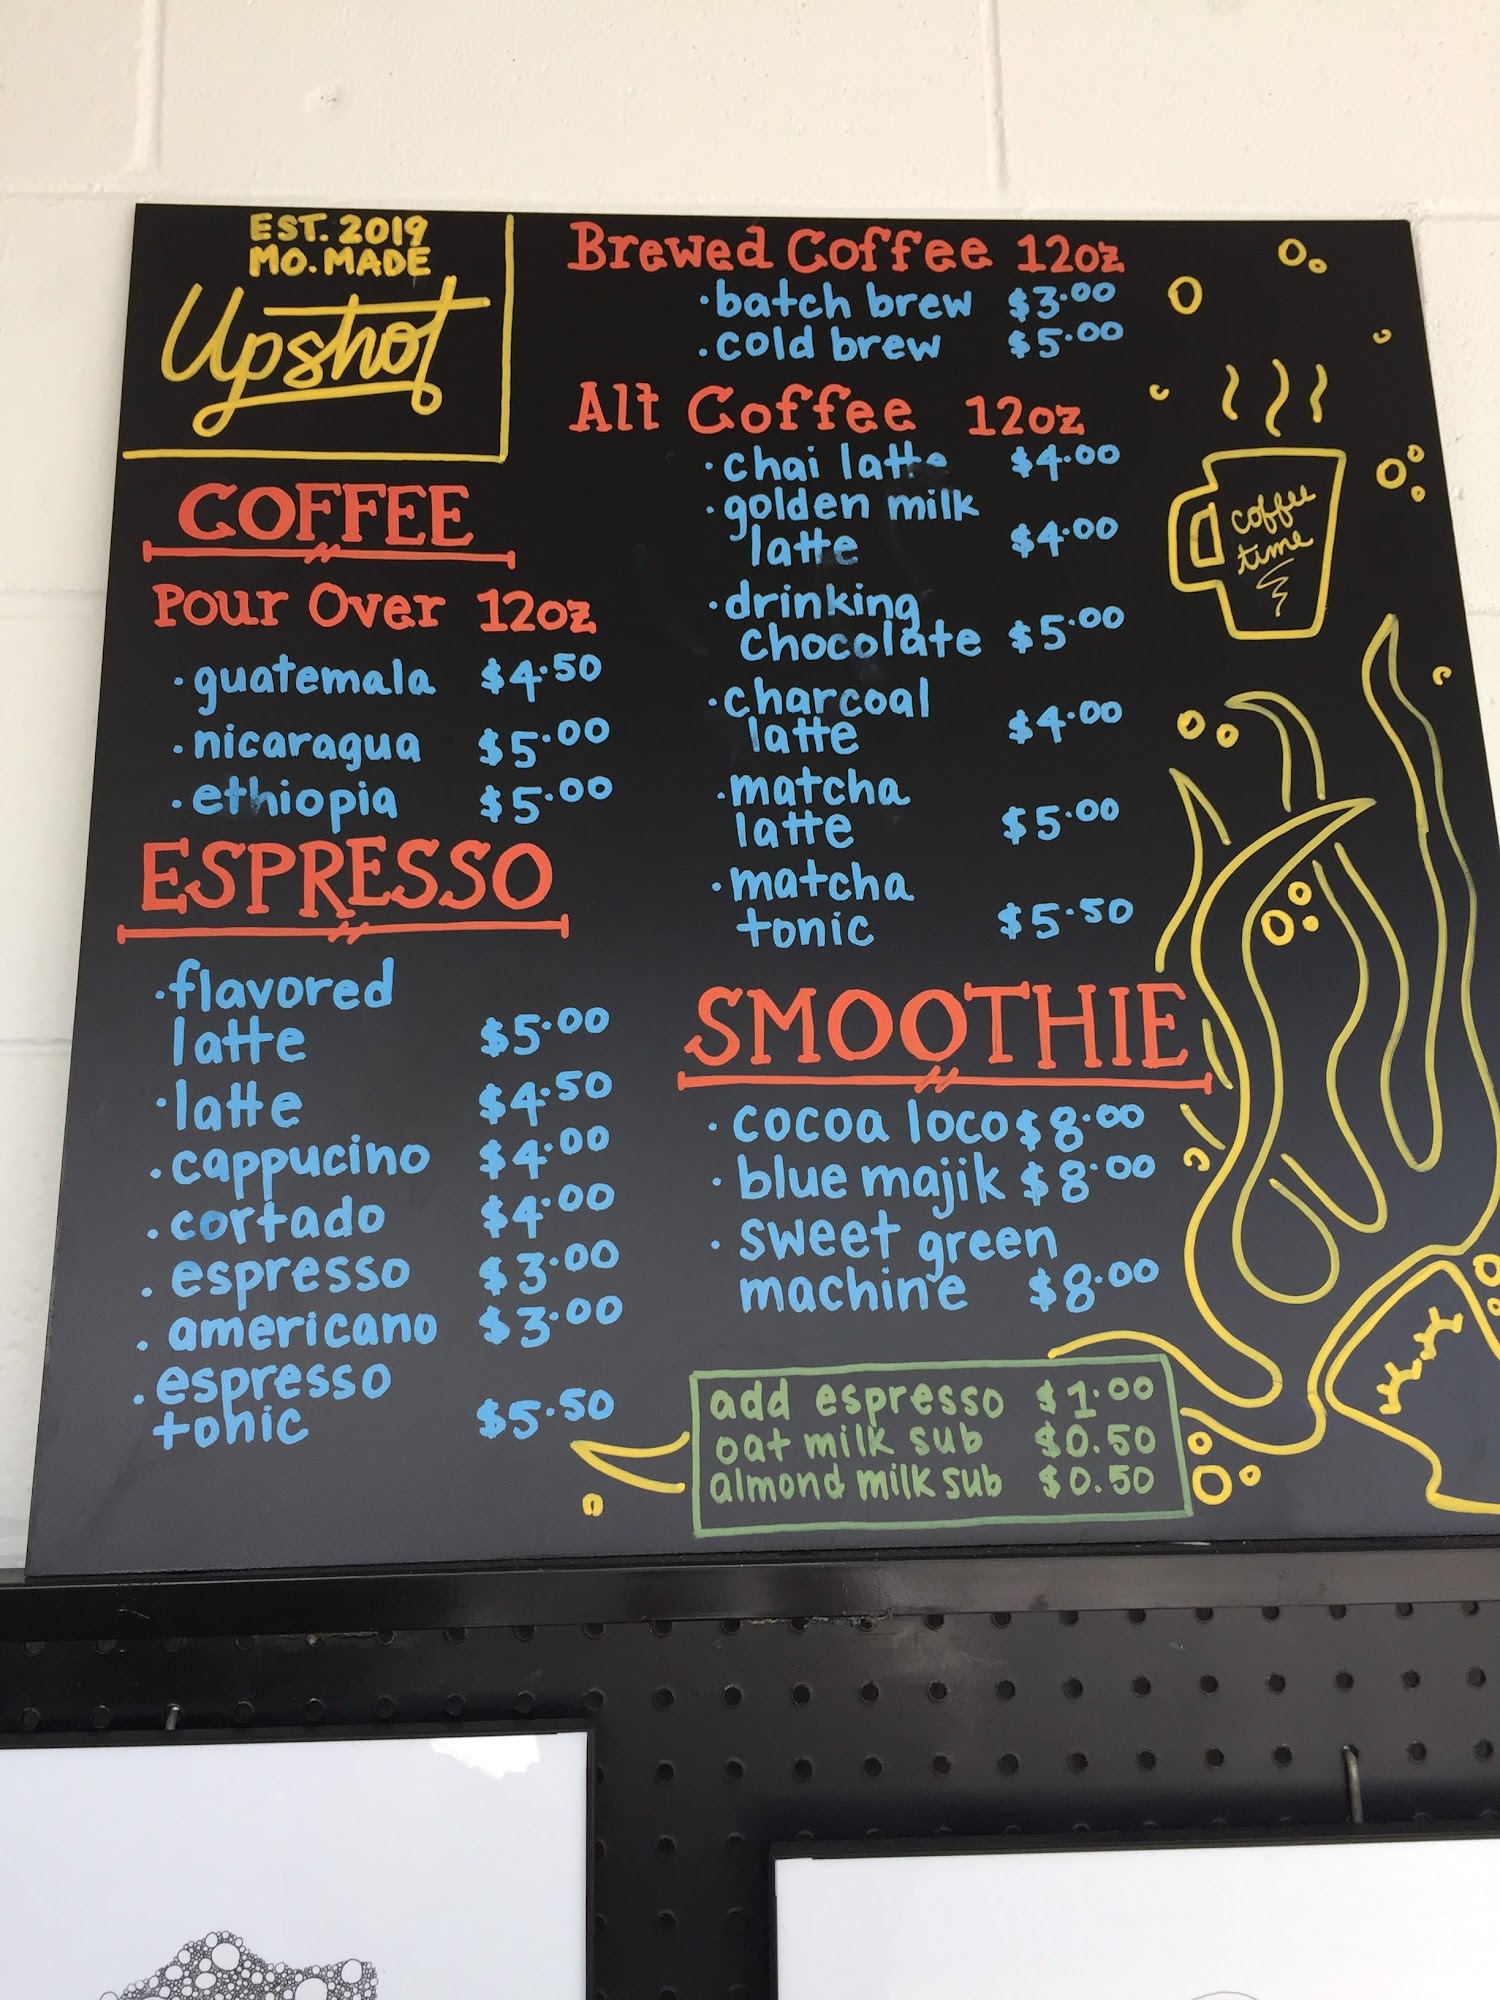 EST. 2019
MO. MADE
Upshot
COFFEE
Pour Over 12oz
· guatemala $4.50
· nicaragua $5.00
· ethiopia $5.00
ESPRESSO
· flavored
latte $5.00
· latte $4.50
· cappucino $4.00
· cortado $4.00
· espresso $3.00
· americano $3.00
· espresso
tonic $5.50
Brewed Coffee 12oz
· batch brew $3.00
· cold brew $5.00
Alt Coffee 12oz
· chai latte $4.00
· golden milk
latte $4.00
· drinking
chocolate $5.00
· charcoal
latte $4.00
· matcha
latte $5.00
· matcha
tonic $5.50
SMOOTHIE
· cocoa loco $8.00
· blue majik $8.00
· sweet green
machine $8.00
add espresso $1.00
oat milk sub $0.50
almond milk sub $0.50
coffee
time